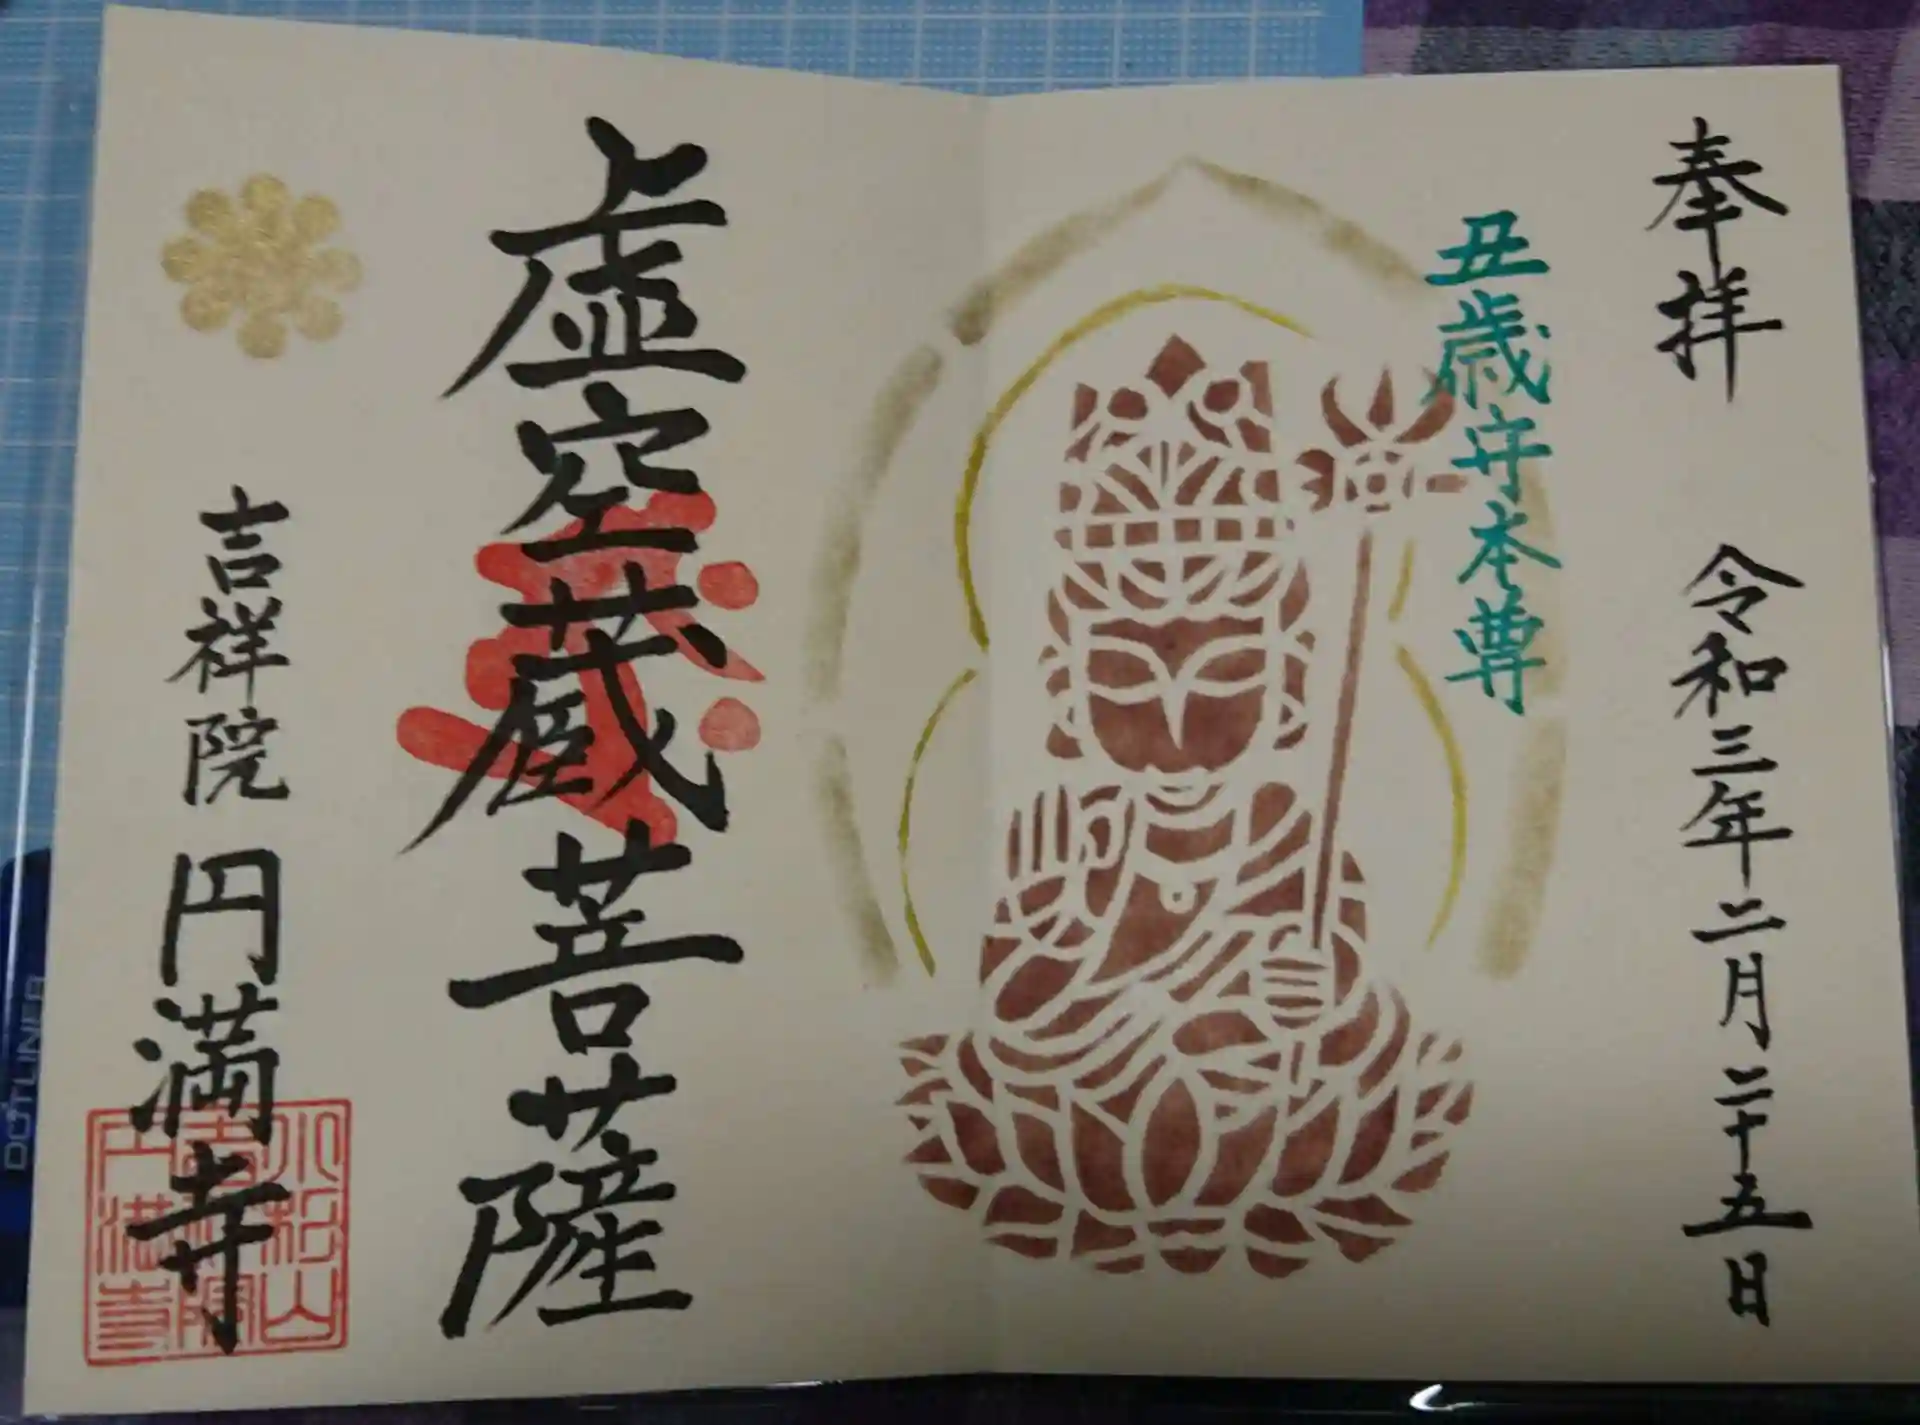 奉拝
令和三年二月二十五日
丑歳守本尊
虚空蔵菩薩
吉祥院
円満寺
小松山
吉祥院
円満寺
OUTLINER